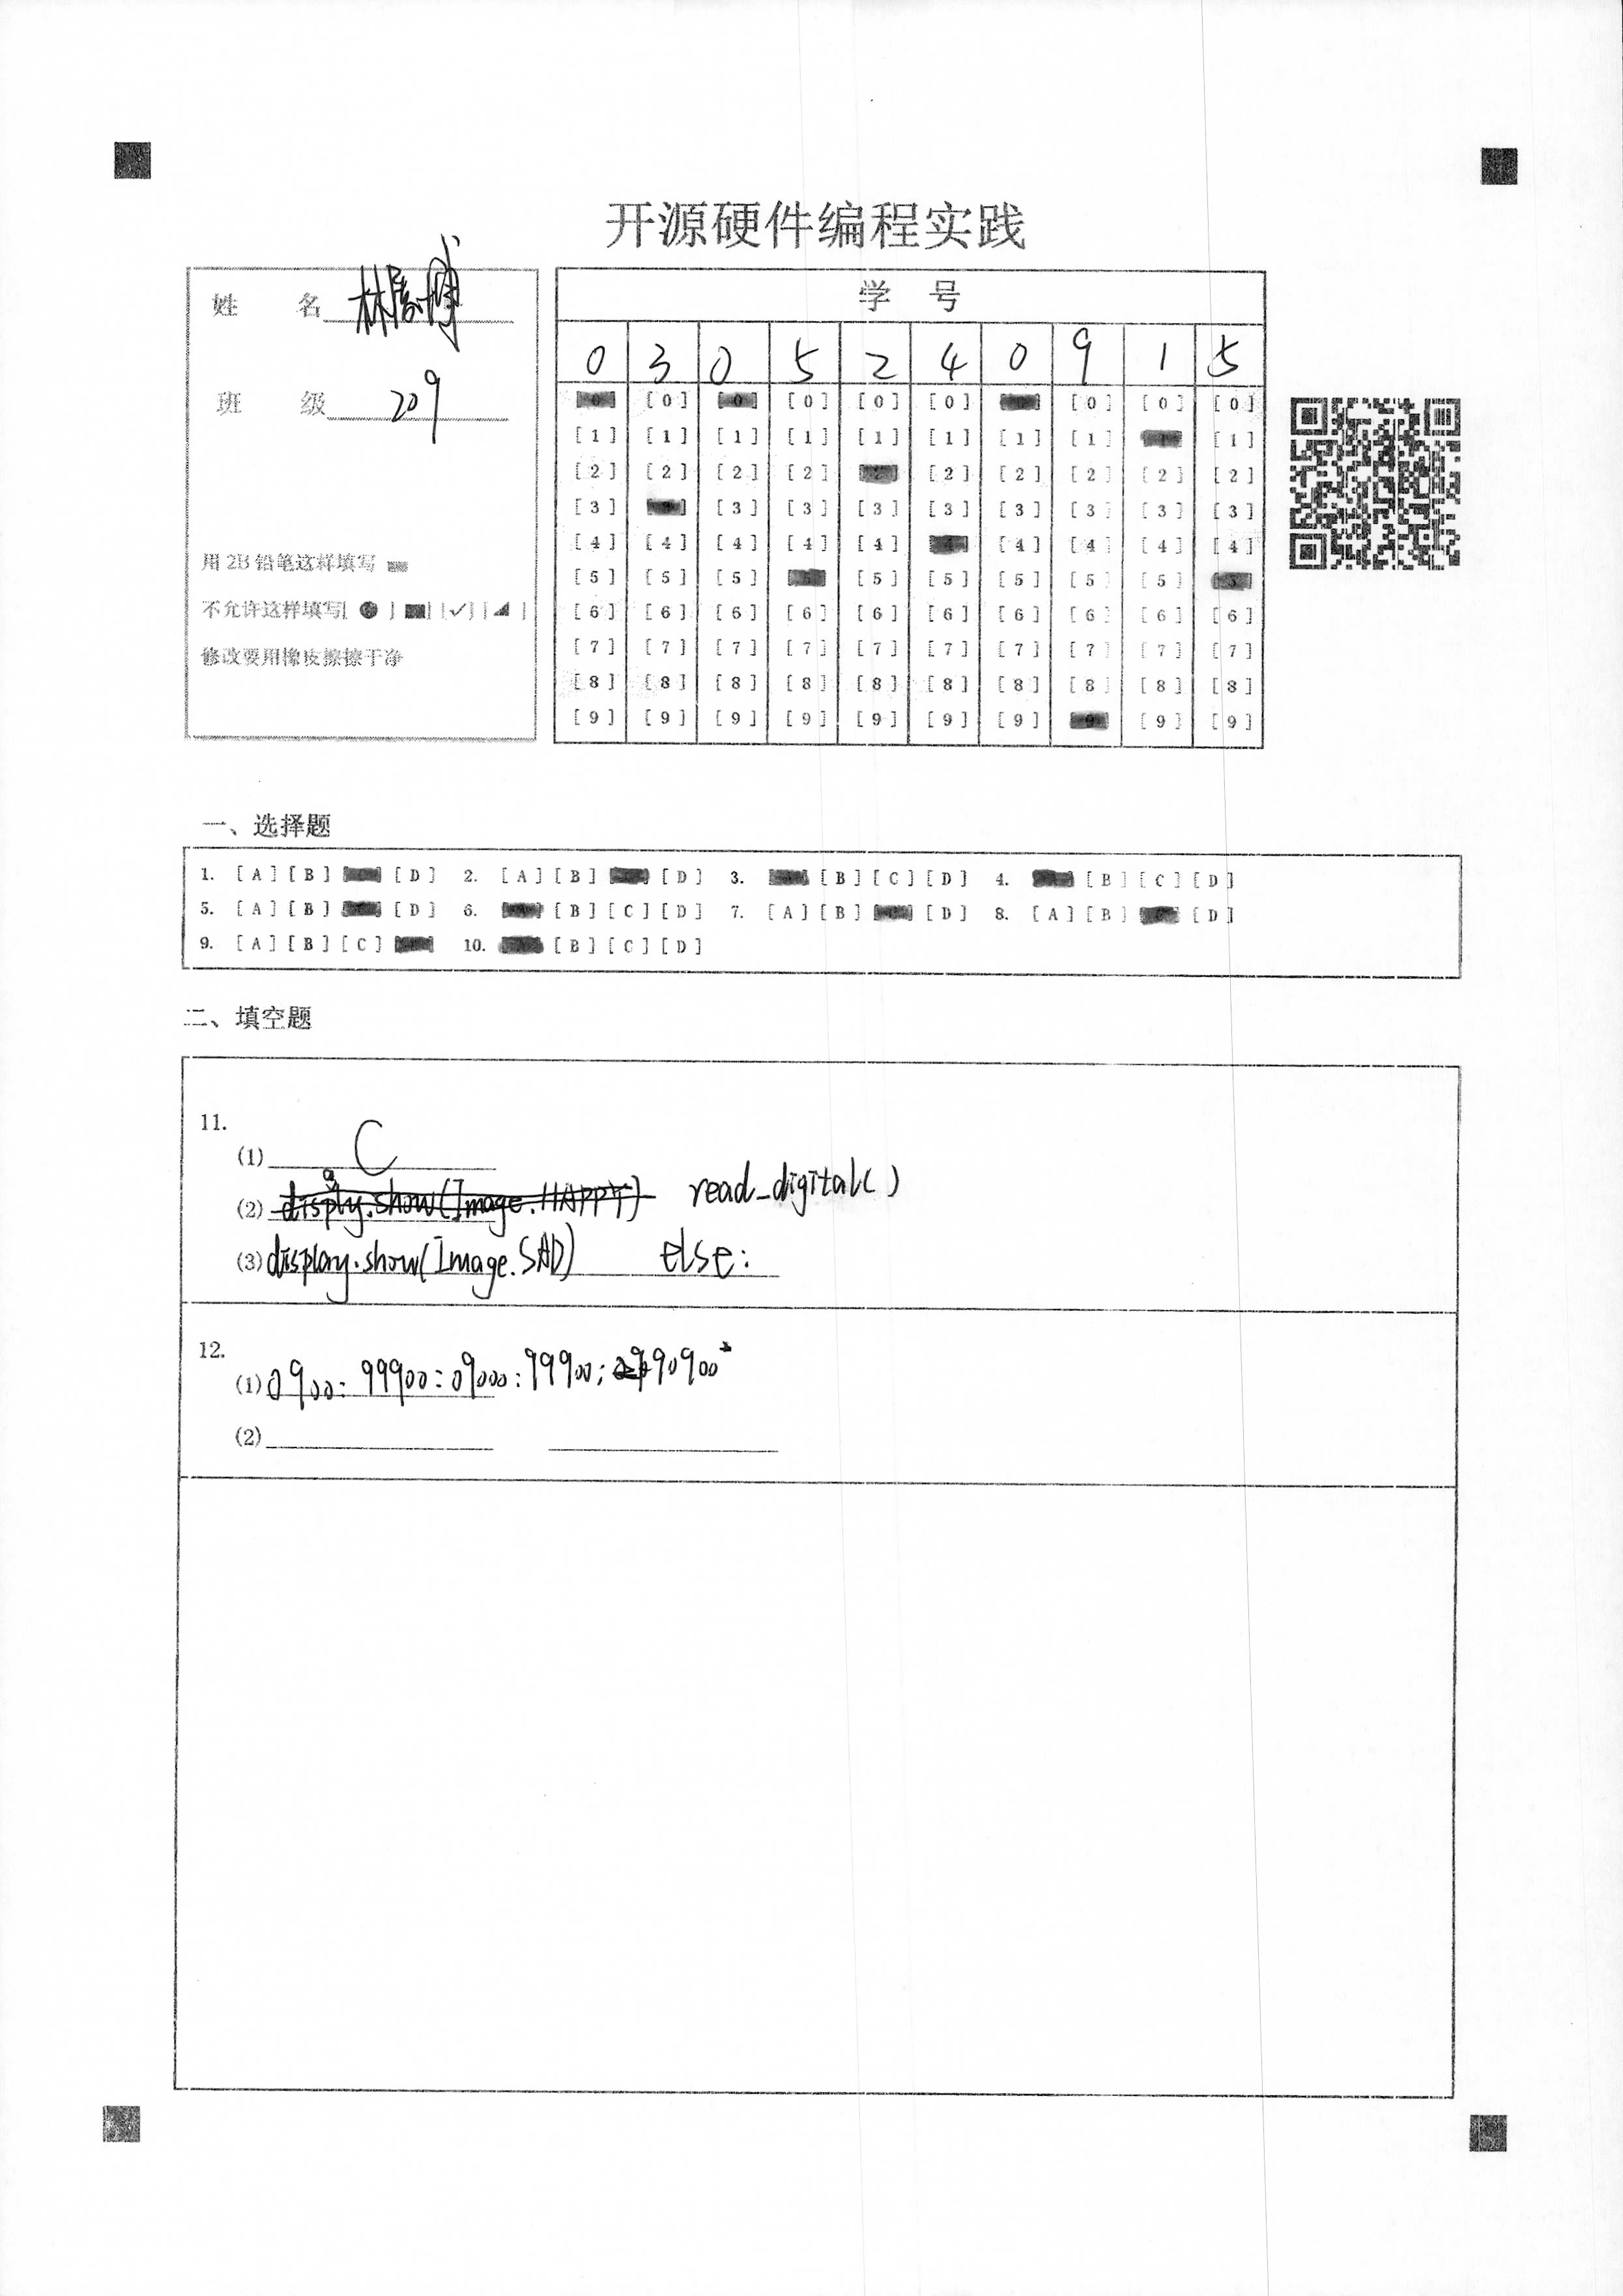 开源硬件编程实践
姓 名 林 博
班 级 209
用 2B 铅笔这样填写
不允许这样填写[ ● ] [■] [✓] [◢ ]
修改要用橡皮擦擦干净
学 号
0 3 0 5 2 4 0 9 1 5
[0] [0] [0] [0] [0] [0] [0] [0] [0] [0]
[1] [1] [1] [1] [1] [1] [1] [1] [1] [1]
[2] [2] [2] [2] [2] [2] [2] [2] [2] [2]
[3] [3] [3] [3] [3] [3] [3] [3] [3] [3]
[4] [4] [4] [4] [4] [4] [4] [4] [4] [4]
[5] [5] [5] [5] [5] [5] [5] [5] [5] [5]
[6] [6] [6] [6] [6] [6] [6] [6] [6] [6]
[7] [7] [7] [7] [7] [7] [7] [7] [7] [7]
[8] [8] [8] [8] [8] [8] [8] [8] [8] [8]
[9] [9] [9] [9] [9] [9] [9] [9] [9] [9]
一、选择题
1. [A] [B] [■] [D] 2. [A] [B] [■] [D] 3. [■] [B] [C] [D] 4. [■] [B] [C] [D]
5. [A] [B] [■] [D] 6. [■] [B] [C] [D] 7. [A] [B] [■] [D] 8. [A] [B] [■] [D]
9. [A] [B] [C] [■] 10. [■] [B] [C] [D]
二、填空题
11.
(1) C
(2) display.show(Image.HAPPY) read_digital()
(3) display.show(Image.SAD) else:
12.
(1) 0900: 99900: 09000: 99900: 90900
(2)